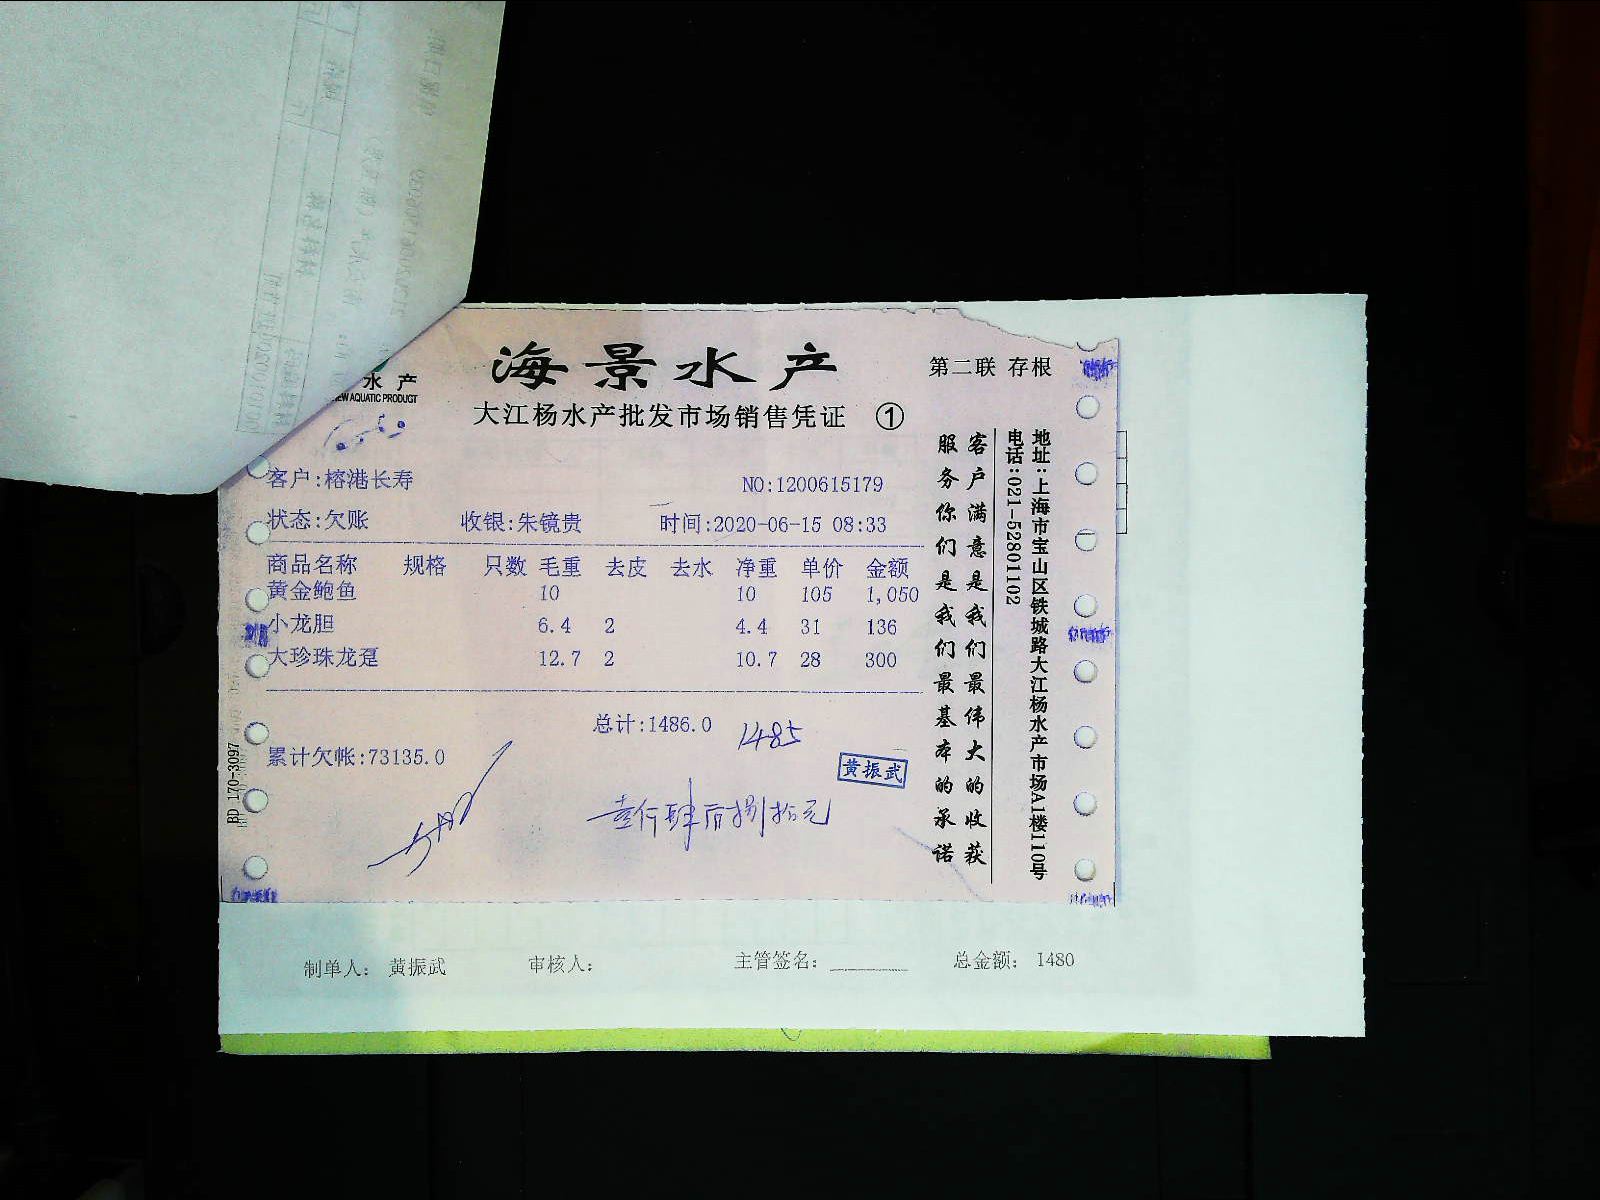 水产
EW AQUATIC PRODUCT
海景水产
大江杨水产批发市场销售凭证 ①
第二联 存根
客户:榕港长寿
NO:1200615179
状态:欠账 收银:朱镜贵 时间:2020-06-15 08:33
商品名称 规格 只数 毛重 去皮 去水 净重 单价 金额
黄金鲍鱼 10 10 105 1,050
小龙胆 6.4 2 4.4 31 136
大珍珠龙趸 12.7 2 10.7 28 300
总计:1486.0 1485
累计欠帐:73135.0
黄振武
壹仟肆百捌拾元
BD 170-3097
客户满意是我们最伟大的收获
服务你们是我们最基本的承诺
地址:上海市宝山区铁城路大江杨水产市场A1楼110号
电话:021-52801102
制单人: 黄振武 审核人: 主管签名: 总金额: 1480